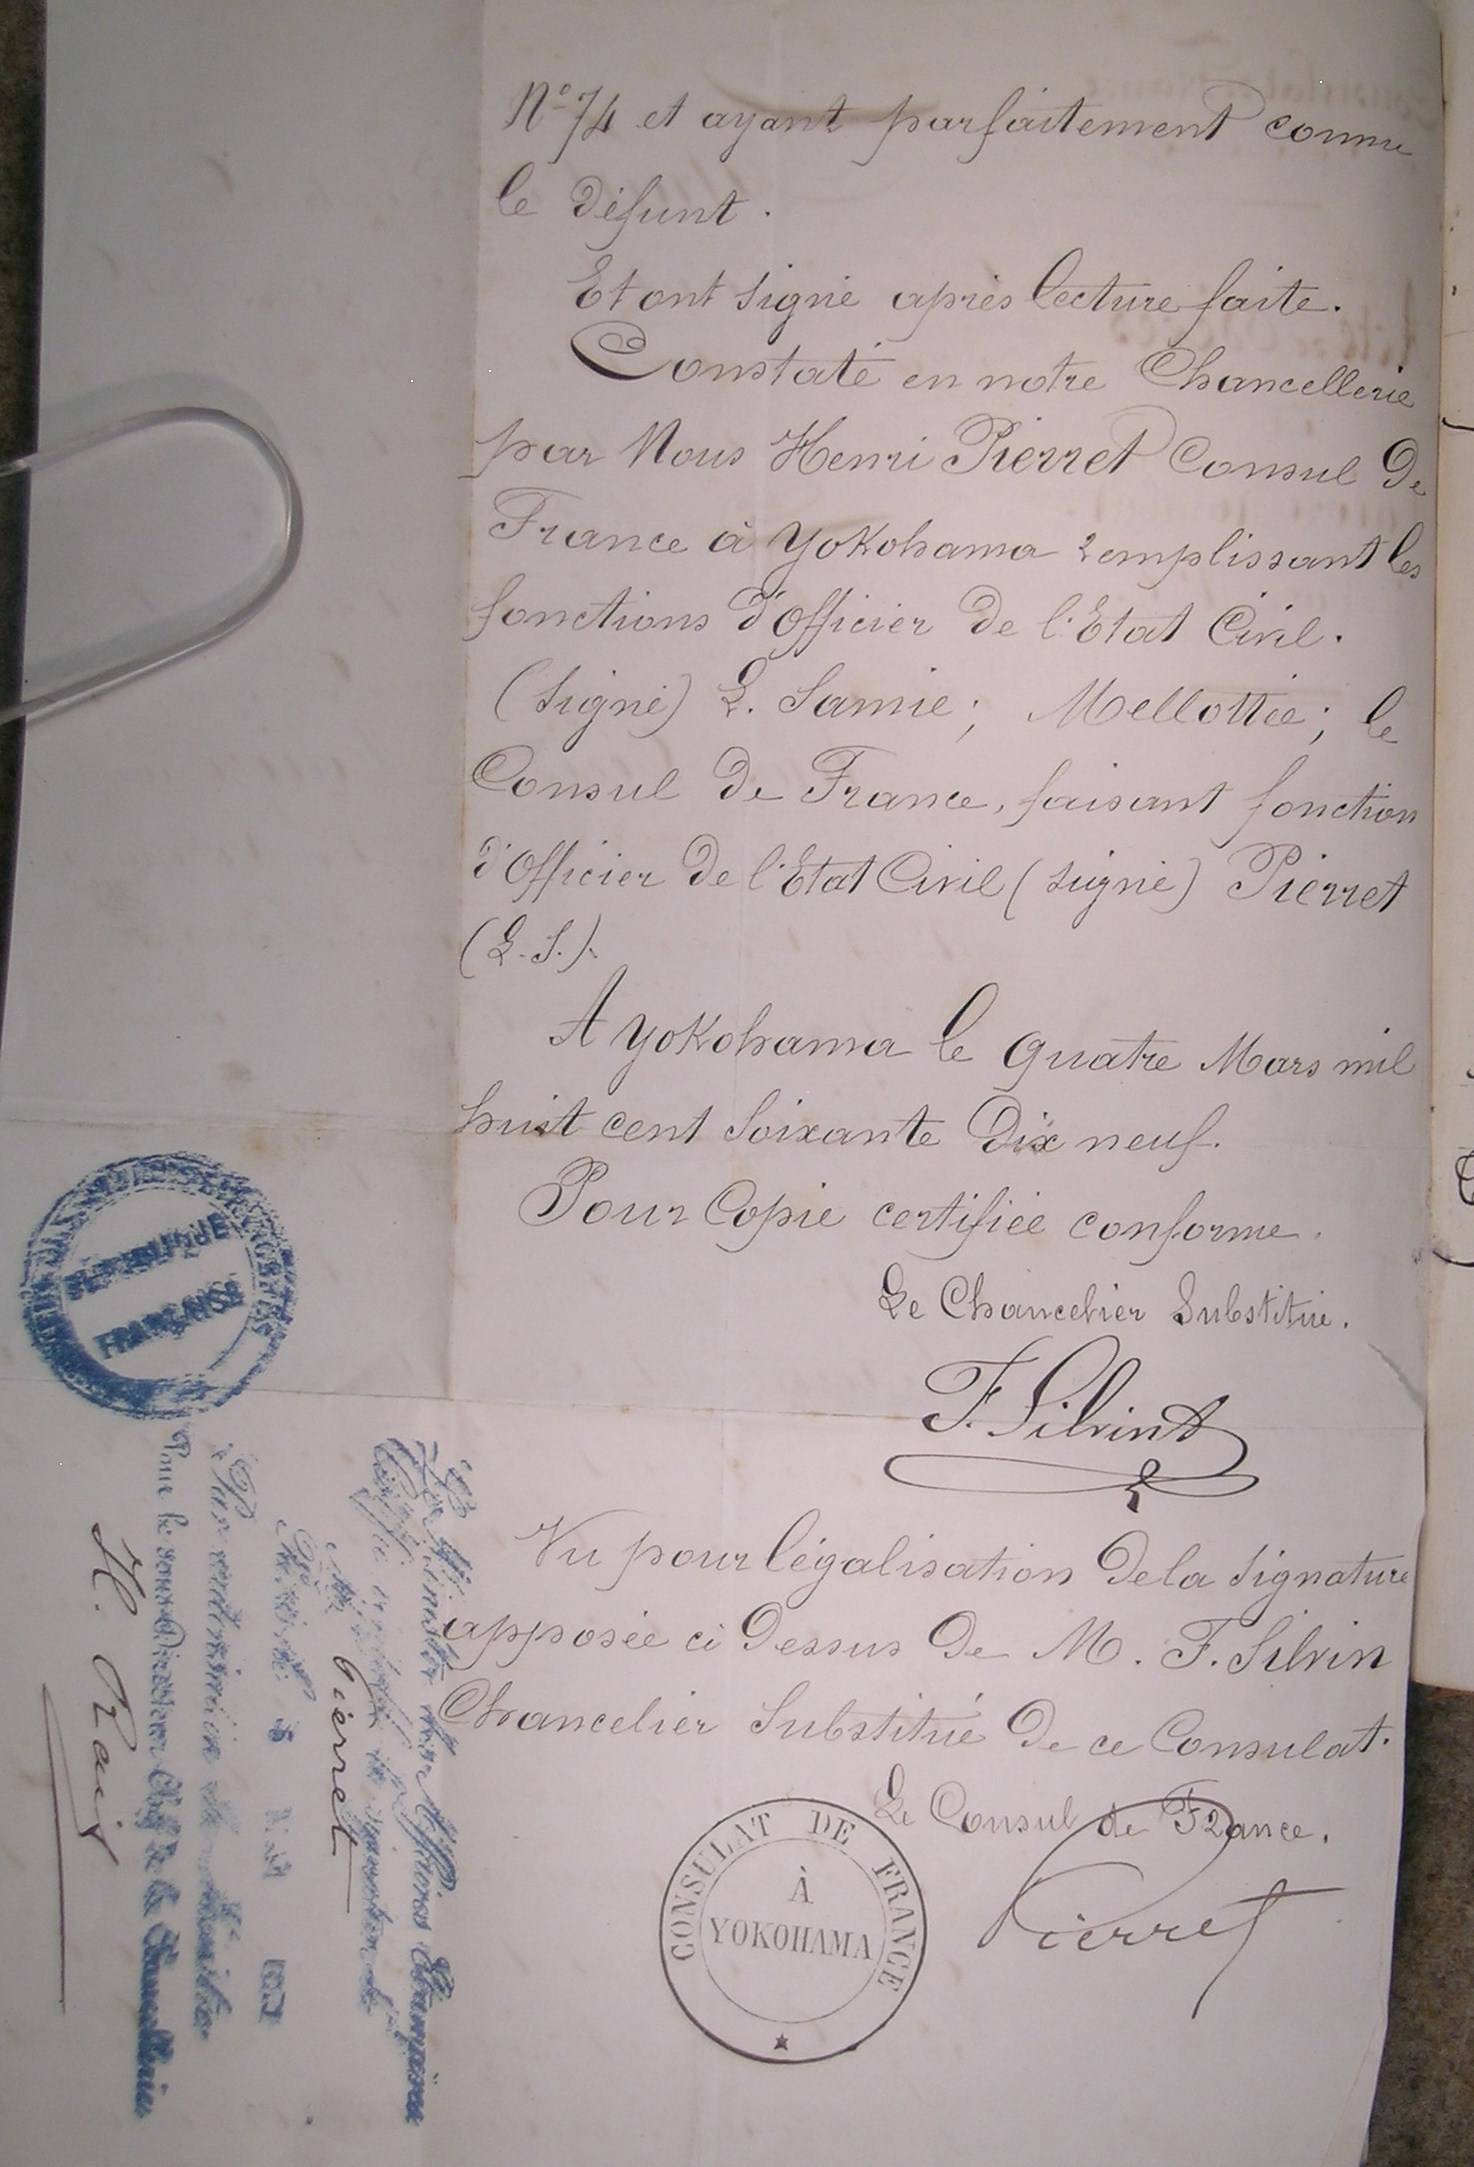 No 74 et ayant parfaitement connu
le défunt.
Et ont signé après lecture faite.
Constaté en notre Chancellerie
par Nous Henri Pierret Consul de
France à Yokohama remplissant les
fonctions d'Officier de l'Etat Civil.
(signé) L. Samie; Mellottée; le
Consul de France, faisant fonction
d'Officier de l'Etat Civil (signé) Pierret
(L.S.).
A Yokohama le quatre Mars mil
huit cent soixante dix neuf.
Pour Copie certifiée conforme.
Le Chancelier Substitué.
F. Silvin
Vu pour légalisation de la signature
apposée ci dessus de M. F. Silvin
Chancelier Substitué de ce Consulat.
Le Consul de France.
Pierret
CONSULAT DE FRANCE
À
YOKOHAMA
RÉPUBLIQUE
FRANÇAISE
Le Ministre des Affaires Etrangères
certifie la signature de
M. Pierret
Par autorisation du Ministre
Pour le sous Directeur Chef de la Chancellerie